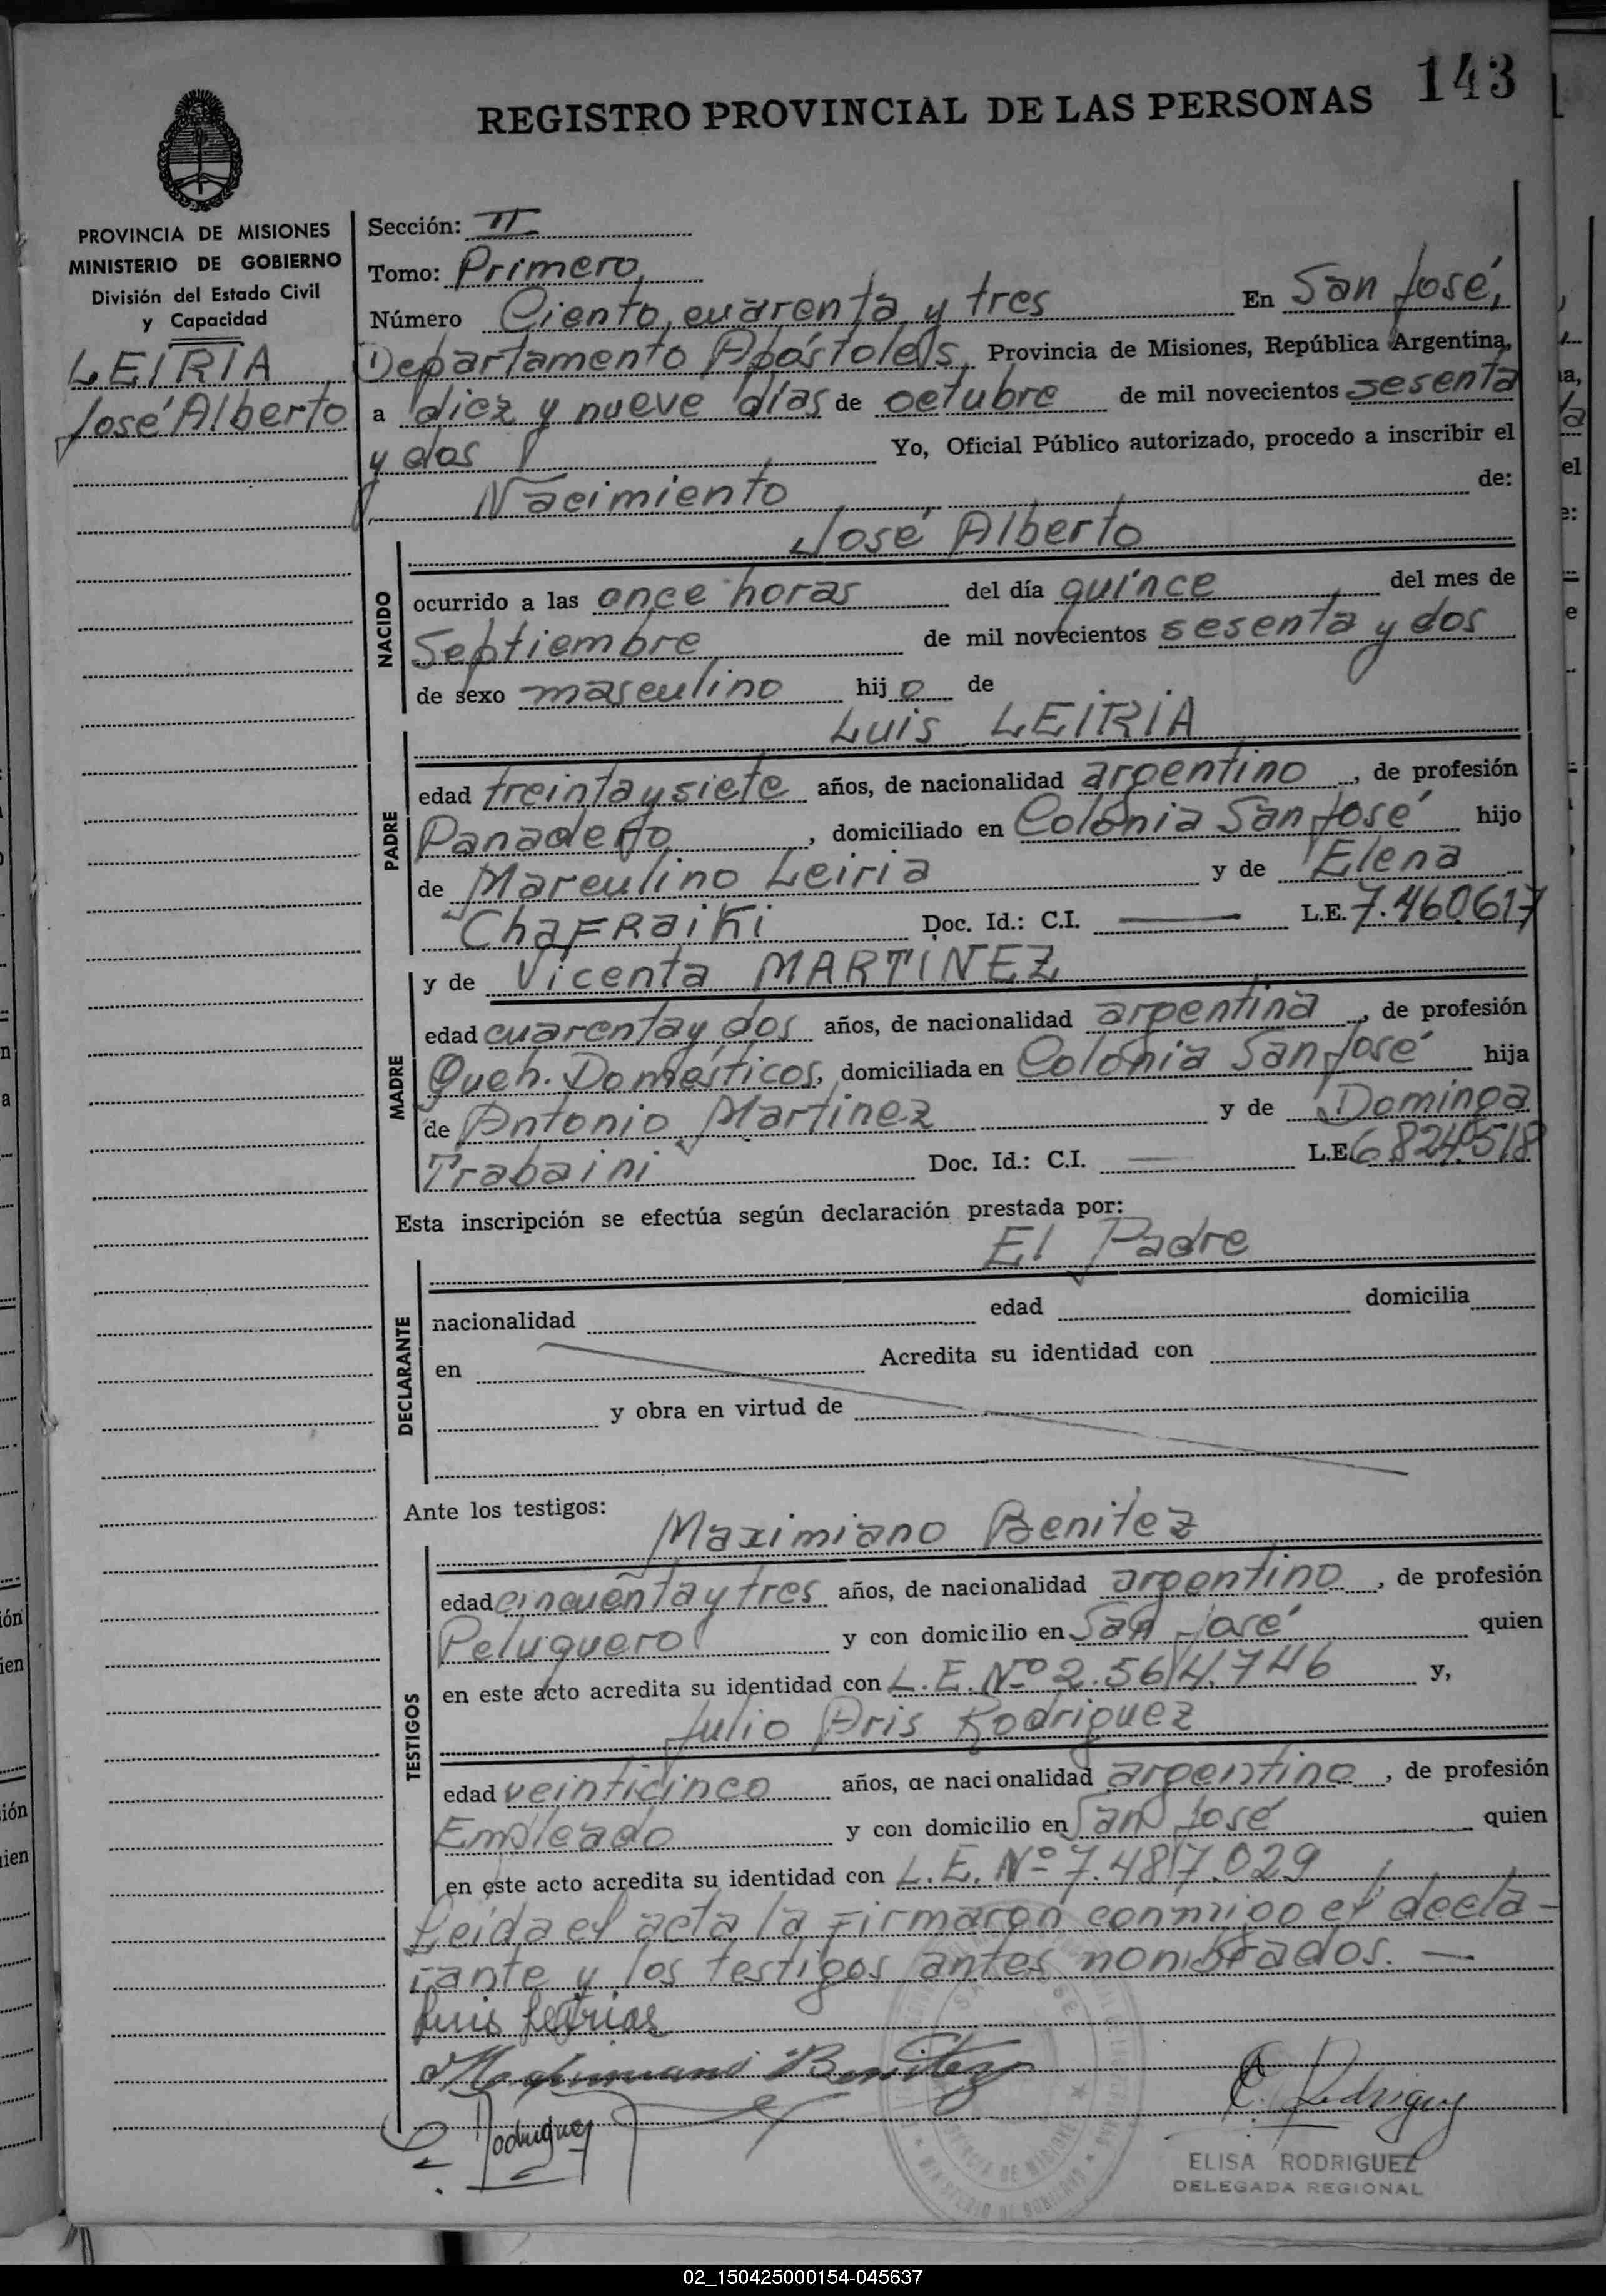 143
REGISTRO PROVINCIAL DE LAS PERSONAS
PROVINCIA DE MISIONES
MINISTERIO DE GOBIERNO
División del Estado Civil
y Capacidad
LEIRIA
José Alberto
Sección: II
Tomo: Primero
Número Ciento cuarenta y tres En San José,
Departamento Apóstoles, Provincia de Misiones, República Argentina,
a diez y nueve días de octubre de mil novecientos sesenta
y dos Yo, Oficial Público autorizado, procedo a inscribir el
Nacimiento de:
José Alberto
NACIDO
ocurrido a las once horas del día quince del mes de
Septiembre de mil novecientos sesenta y dos
de sexo masculino hijo de
Luis LEIRIA
PADRE
edad treinta y siete años, de nacionalidad argentino, de profesión
Panadero, domiciliado en Colonia San José hijo
de Marculino Leiria y de Elena
ChaFRaiKi Doc. Id.: C.I. L.E. 7.460617
y de Vicenta MARTINEZ
MADRE
edad cuarenta y dos años, de nacionalidad argentina, de profesión
Queh. Domésticos, domiciliada en Colonia San José hija
de Antonio Martinez y de Dominga
Trabaini Doc. Id.: C.I. L.E. 6824518
Esta inscripción se efectúa según declaración prestada por:
El Padre
DECLARANTE
nacionalidad edad domicilia
en Acredita su identidad con
y obra en virtud de
Ante los testigos:
Maximiano Benitez
TESTIGOS
edad cincuenta y tres años, de nacionalidad argentino, de profesión
Peluquero y con domicilio en San José quien
en este acto acredita su identidad con L.E. Nº 2.564.746 y,
Julio Aris Rodriguez
edad veinticinco años, de nacionalidad argentino, de profesión
Empleado y con domicilio en San José quien
en este acto acredita su identidad con L.E. Nº 7.487.029
Leida el acta la Firmaron conmigo el decla-
rante y los testigos antes nombrados.—
Luis
Benitez
Rodriguez
ELISA RODRIGUEZ
DELEGADA REGIONAL
02_150425000154-045637